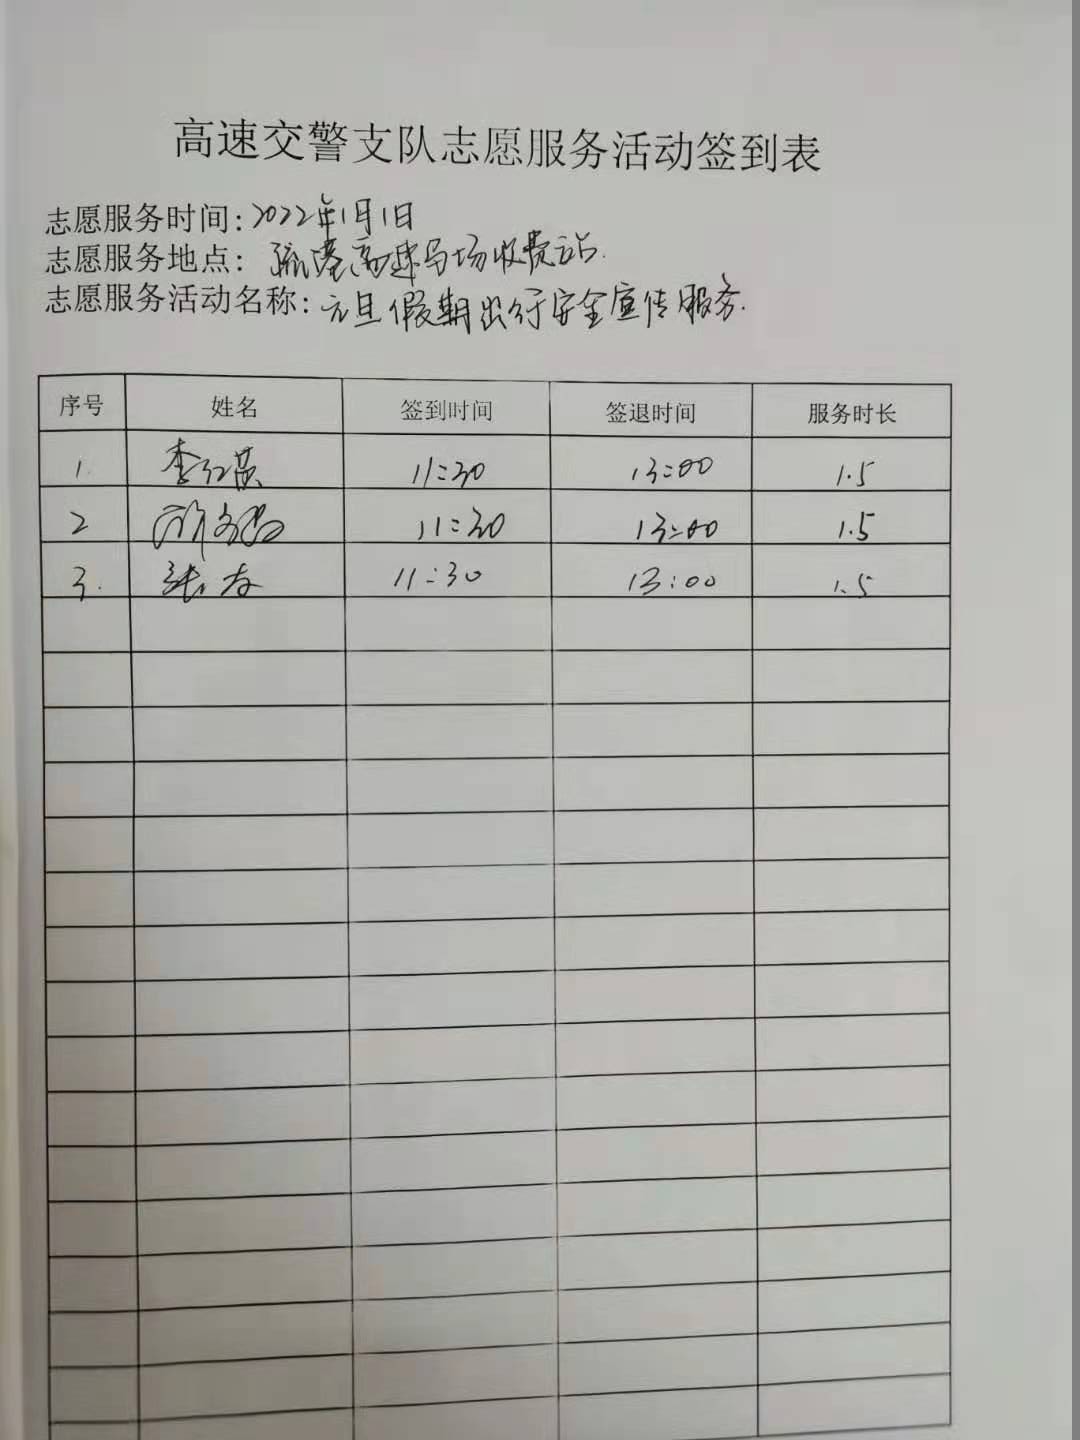 高速交警支队志愿服务活动签到表
志愿服务时间：2022年1月1日
志愿服务地点：疏港高速马场收费站.
志愿服务活动名称：元旦假期出行安全宣传服务.
序号 姓名 签到时间 签退时间 服务时长
1. 李红 11:30 13:00 1.5
2 11:30 13:00 1.5
3. 张 11:30 13:00 1.5